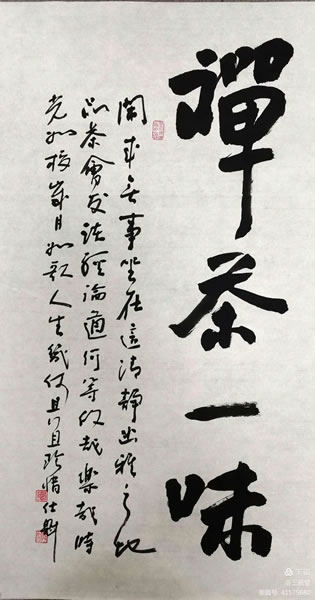 禪茶一味
閒來無事坐在這清靜幽雅之地
品茶會友談經論道何等的快樂哉時
光如梭歲月如歌人生幾何且行且珍惜仕